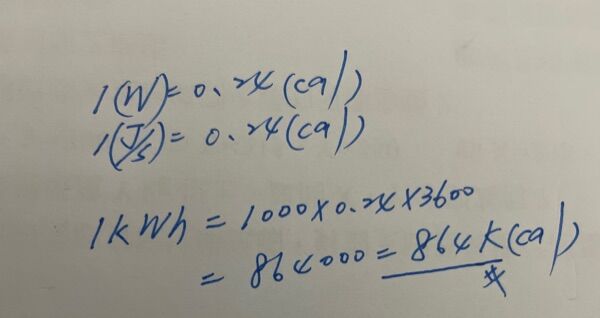 1(W)=0.24(cal)
1(J/s)=0.24(cal)
1kWh=1000×0.24×3600
=864000=864K(cal)#